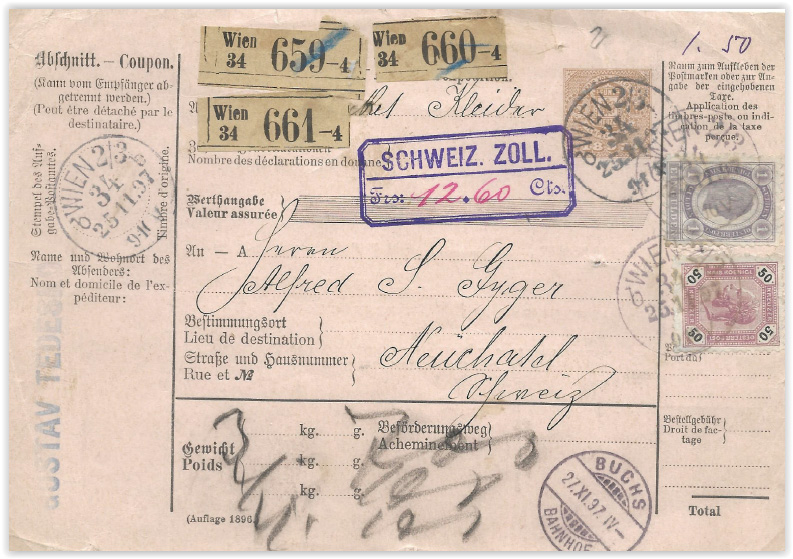 Abschnitt. — Coupon.
(Kann vom Empfänger abgetrennt werden.)
(Peut être détaché par le destinataire.)
Stempel des Aufgabe-Postamtes.
Timbre d'origine.
WIEN 2/3
34
25 11.97
Name und Wohnort des Absenders:
Nom et domicile de l'expéditeur:
GUSTAV
Wien
34
659-4
Wien
34
660-4
Wien
34
661-4
Kleider
Nombre des déclarations en douane
SCHWEIZ. ZOLL.
Frs: 12.60 Cts.
Werthangabe
Valeur assurée
An — A Herrn
Alfred S. Gyger
Bestimmungsort
Lieu de destination
Neuchatel
Straße und Hausnummer
Rue et №
Schweiz
Gewicht
Poids
kg. g.
kg. g.
kg. g.
Beförderungsweg
Acheminement
(Auflage 1896
BUCHS
27.XI.97.IV–
BAHNHOF
1. 50
Raum zum Aufkleben der
Postmarken oder zur Angabe der eingehobenen
Taxe.
Application des
timbres-poste, ou indication de la taxe
perçue.
WIEN 2/3
34
1
1
WIEN
50
50
50
50
Port du
Bestellgebühr
Droit de factage
Total